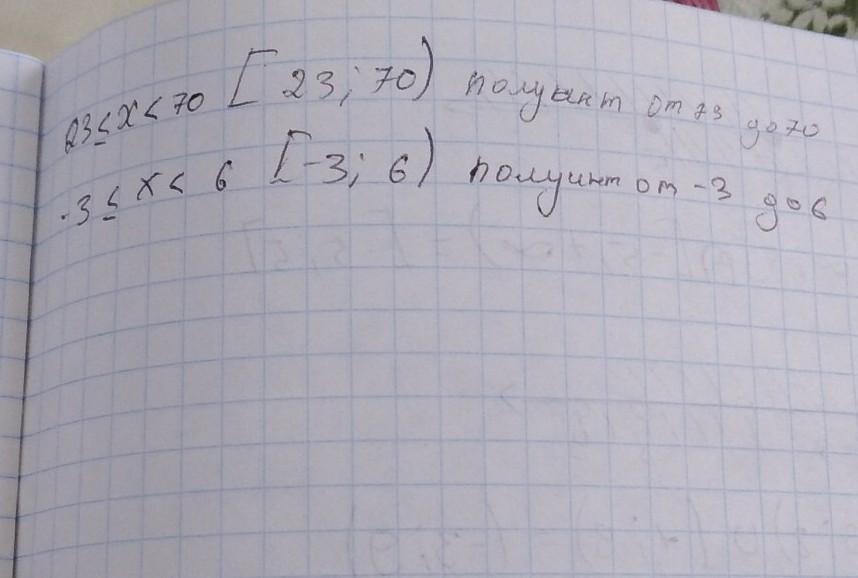 23≤x<70 [23; 70) полуинт от 23 до 70
-3≤x<6 [-3; 6) полуинт от -3 до 6